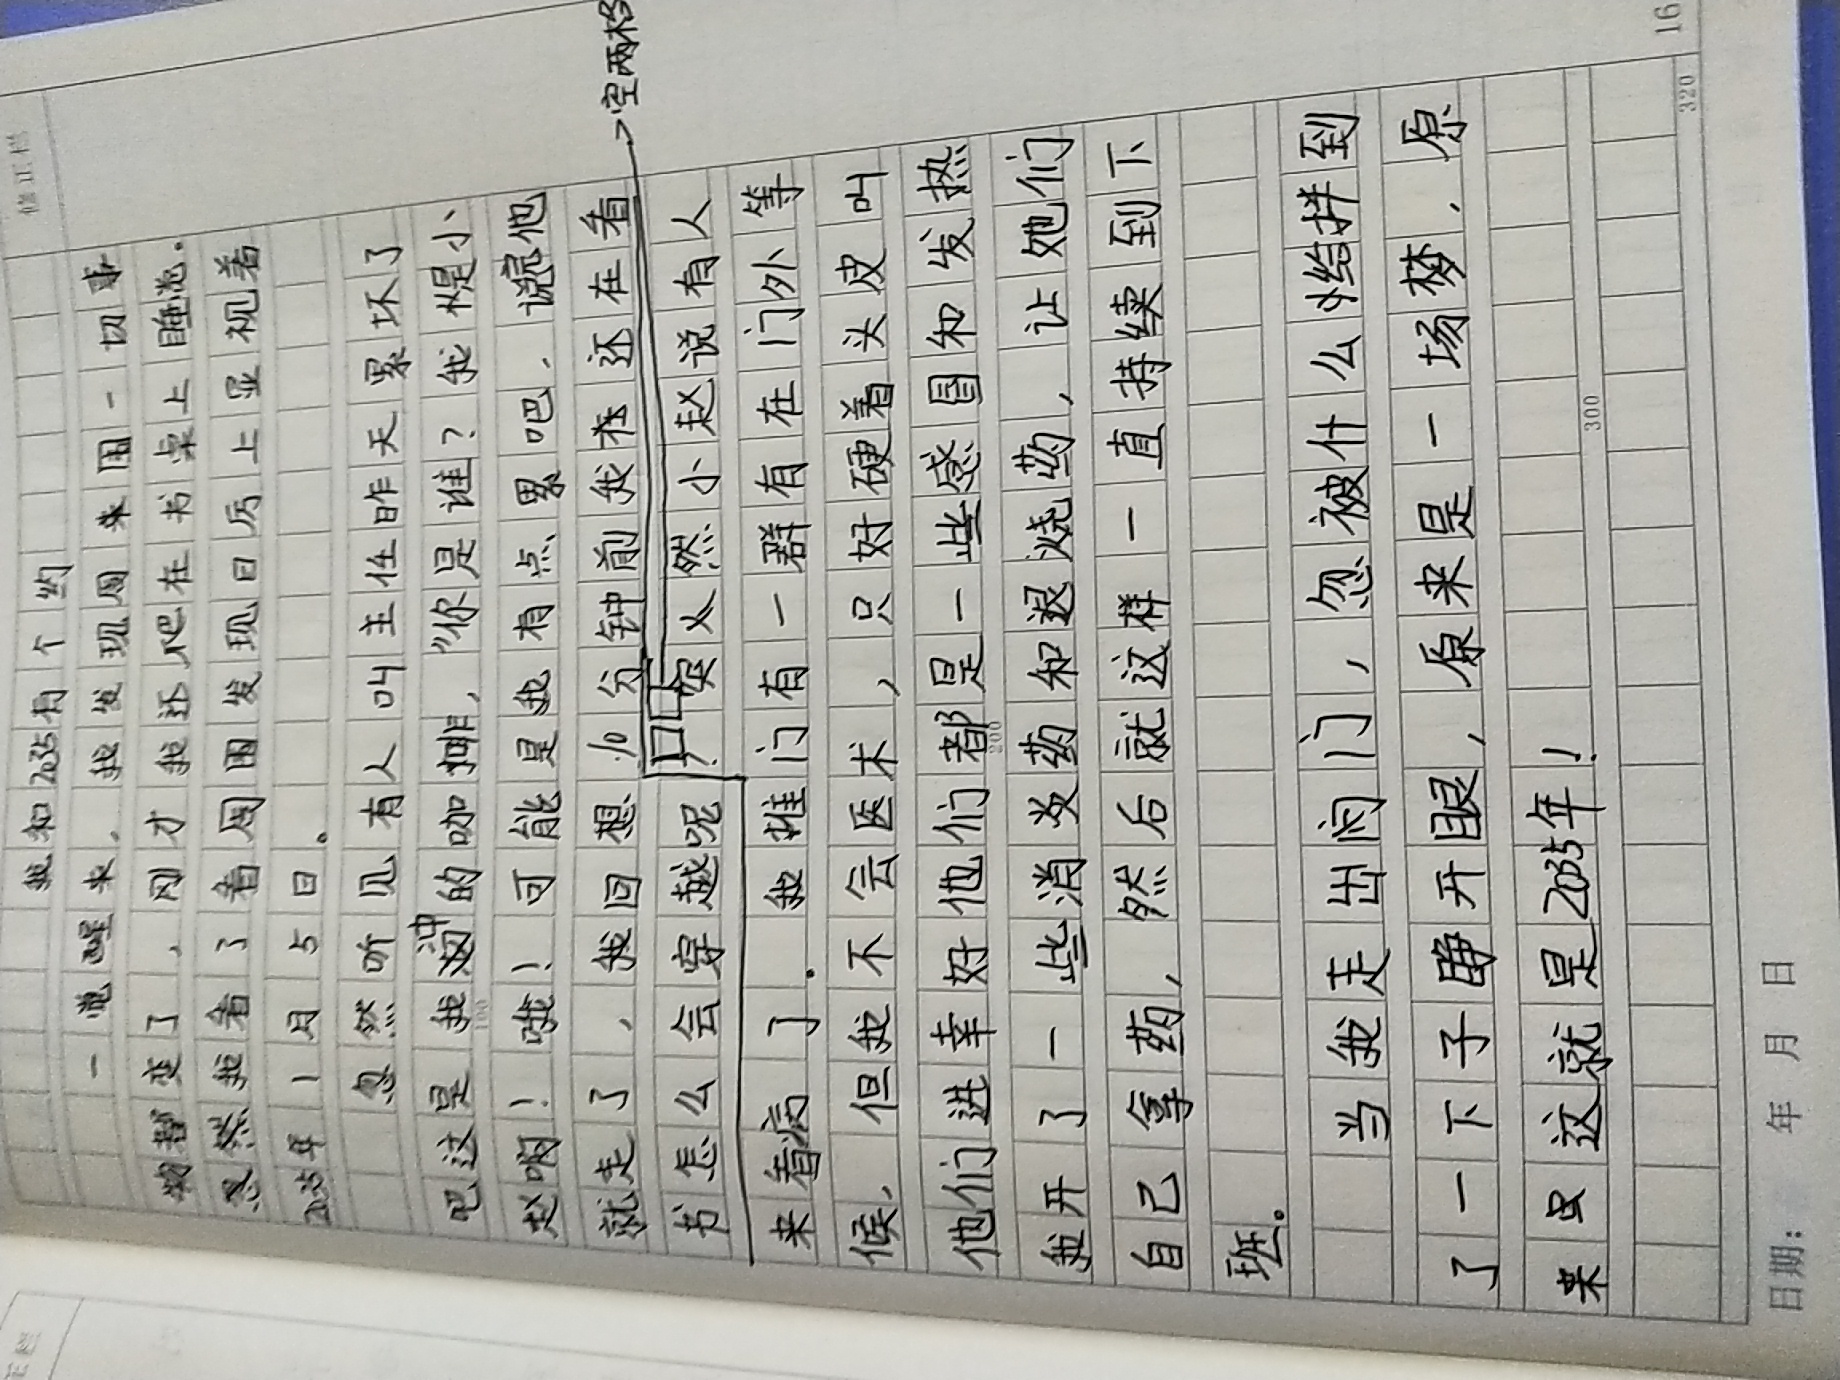 修正栏
我和2035有个约
一觉醒来，我发现周来围一切事
都变了，刚才我还爬在书桌上睡觉。
忽然我看了看周围发现日历上显视着
2035年1月5日。
忽然听见有人叫主任昨天累坏了
吧这是我冲的咖啡，"你是谁？我惧是小
赵啊！哦！可能是我有点累吧，说完他
就走了，我回想10分钟前我在还在看
→空两档
书怎么会穿越呢？突然小赵说有人
来看病了。我推门有一群有在门外等
候，但我不会医术，只好硬着头皮叫
他们进幸好他们都是一些感冒和发热
我开了一些消炎药和退烧药，让她们
自己拿药，然后就这样一直持续到下
班。
当我走出间门，忽被什么给拌到
了一下子睁开眼，原来是一场梦，原
来这就是2035年！
100
200
300
320
日期： 年 月 日
16